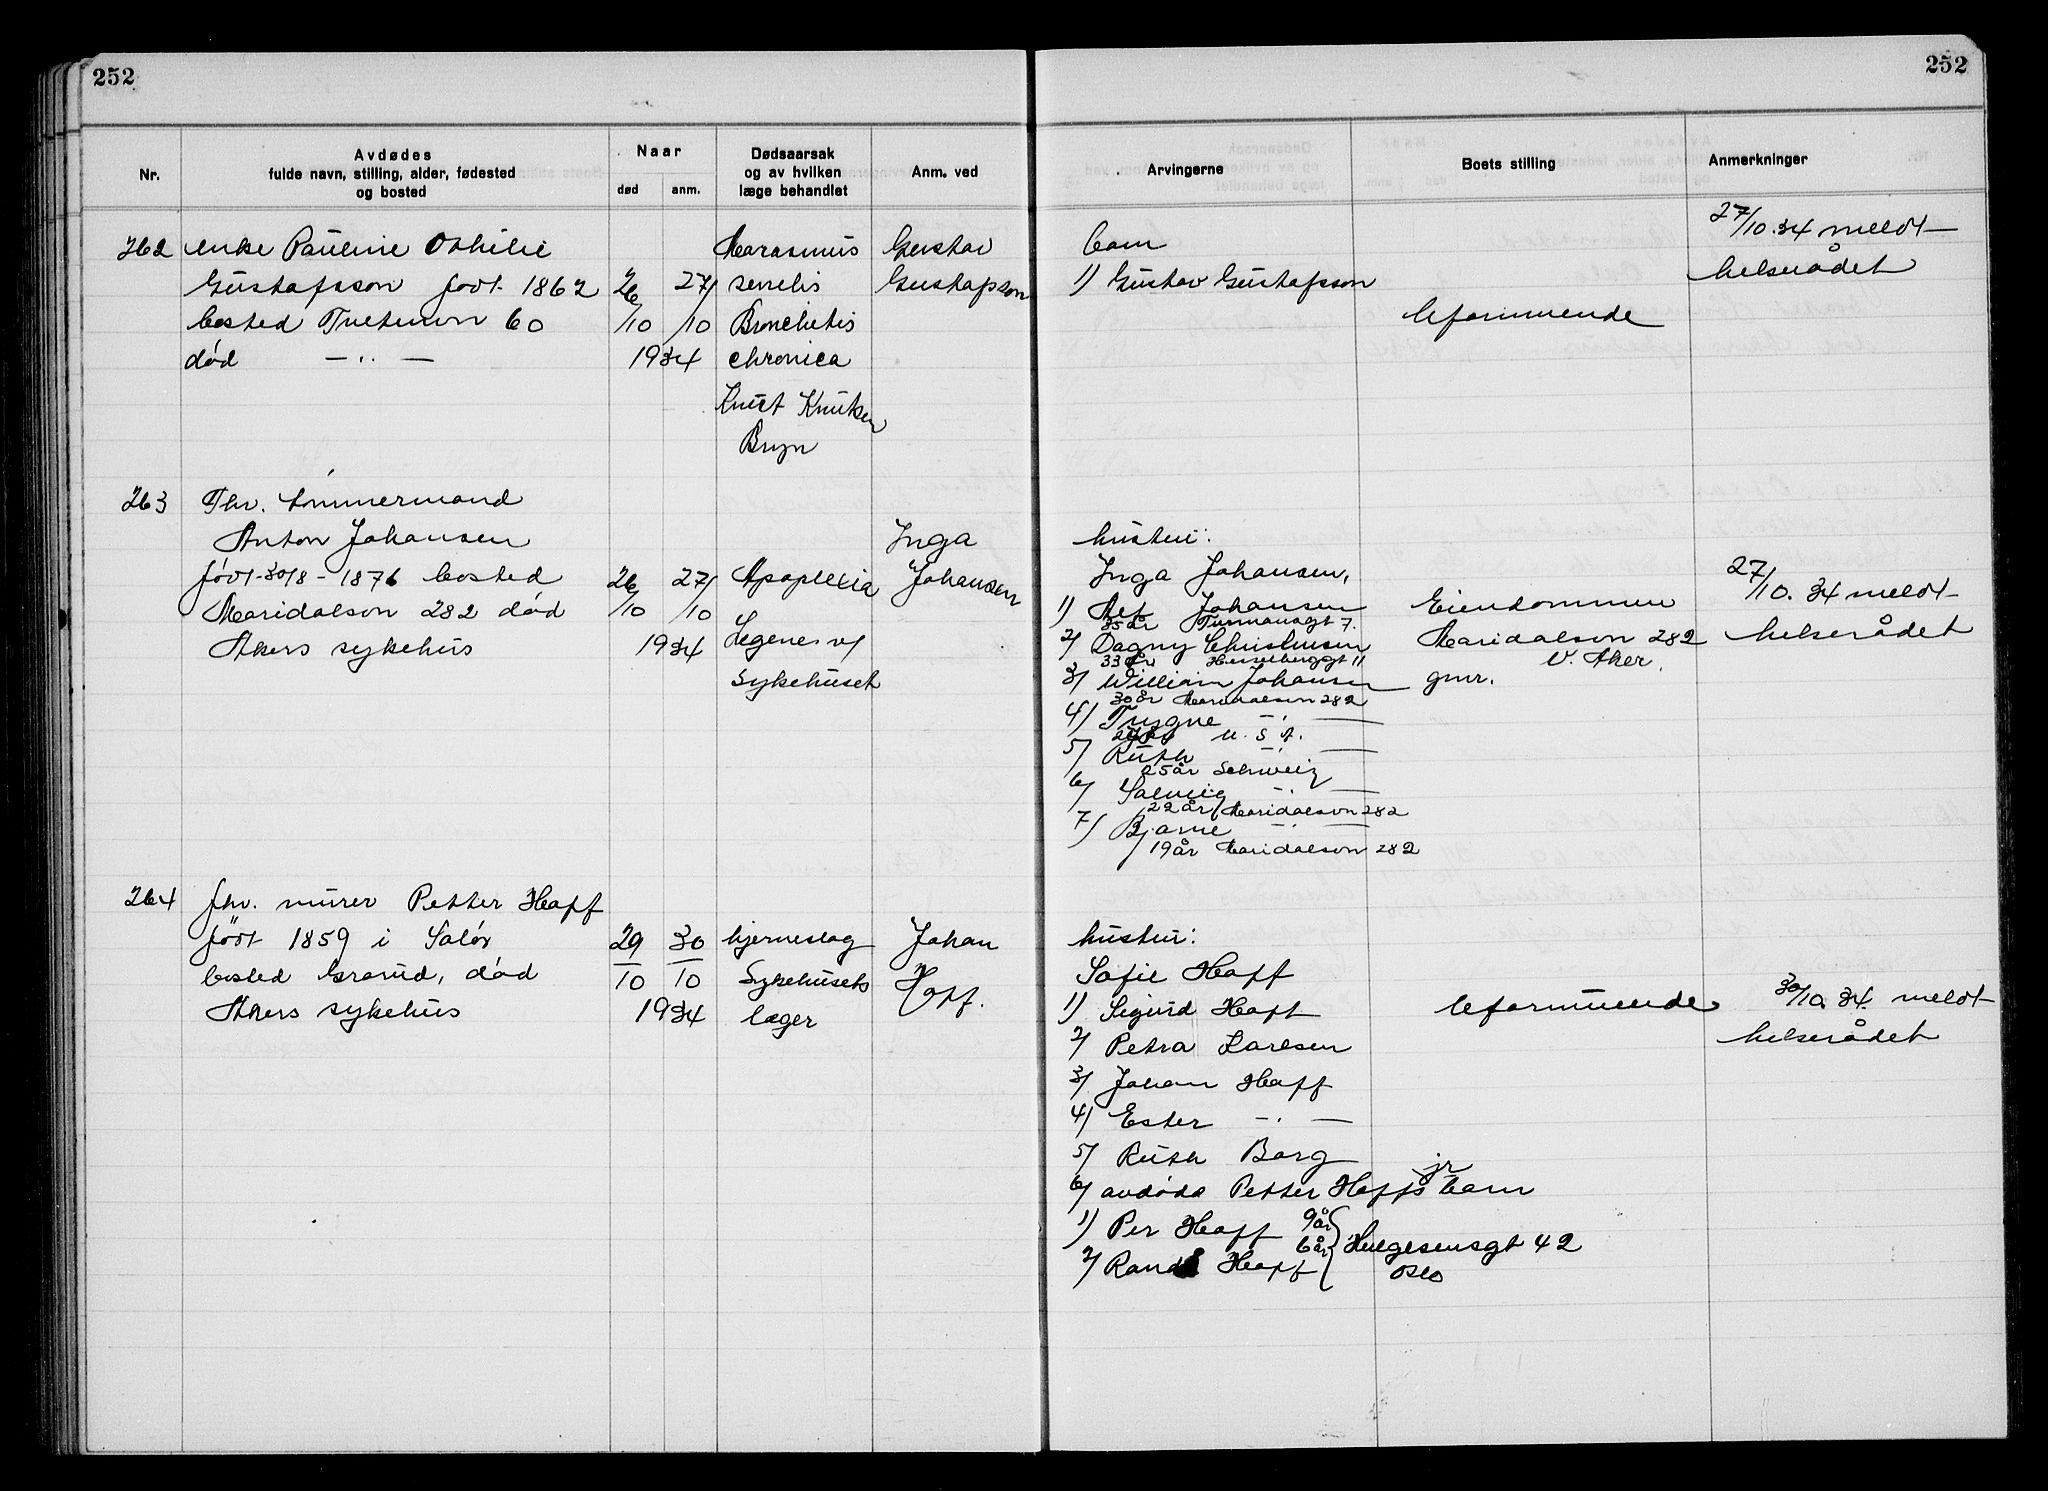 252
252
Nr.
Avdødes
fulde navn, stilling, alder, fødested
og bosted
Naar
død
anm.
Dødsaarsak
og av hvilken
læge behandlet
Anm. ved
Arvingerne
Boets stilling
Anmerkninger
262
enke Pauline Othilie
Gustafsson født 1862
bosted Tvetenvn 60
død — " —
26/10
27/10
1934
Marasmus
senelis
Bronchitis
chronica
Knut Knutsen
Bryn
Gustav
Gustafsson
barn
1) Gustav Gustafsson
Uformuende
27/10.34 meldt
helserådet
263
Fhv. tømmermand
Anton Johansen
født 30/8 - 1876 bosted
Maridalsvn 282 død
Akers sykehus
26/10
27/10
1934
Apoplexia
Legene v/
sykehuset
Inga
Johansen
hustru:
Inga Johansen,
1) Johansen
35 år 7.
2) Dagny Christensen
33 år Hesselberggt 11
3) William Johansen
30 år Maridalsvn 282
4) Trygve — " —
U.S.A.
5) Ruth — " —
25 år Schweiz
6) Solveig — " —
22 år Maridalsvn 282
7) Bjarne — " —
19 år Maridalsvn 282
Eiendommen
Maridalsvn 282
V. Aker.
gnr.
27/10. 34 meldt
helserådet
264
fhv. murer Petter Hoff
født 1859 i Solør
bosted Grorud, død
Akers sykehus
29/10
30/10
1934
hjerneslag
Sykehusets
læger
Johan
Hoff.
hustru:
Sofie Hoff
1) Sigurd Hoff
2) Petra Karlsen
3) Johan Hoff
4) Ester — " —
5) Ruth Borg
6) avdøde Petter Hoffs jr barn
1) Per Hoff 9 år
2) Randi Hoff 6 år
Helgesensgt 42
Oslo
Uformuende
30/10. 34. meldt
helserådet